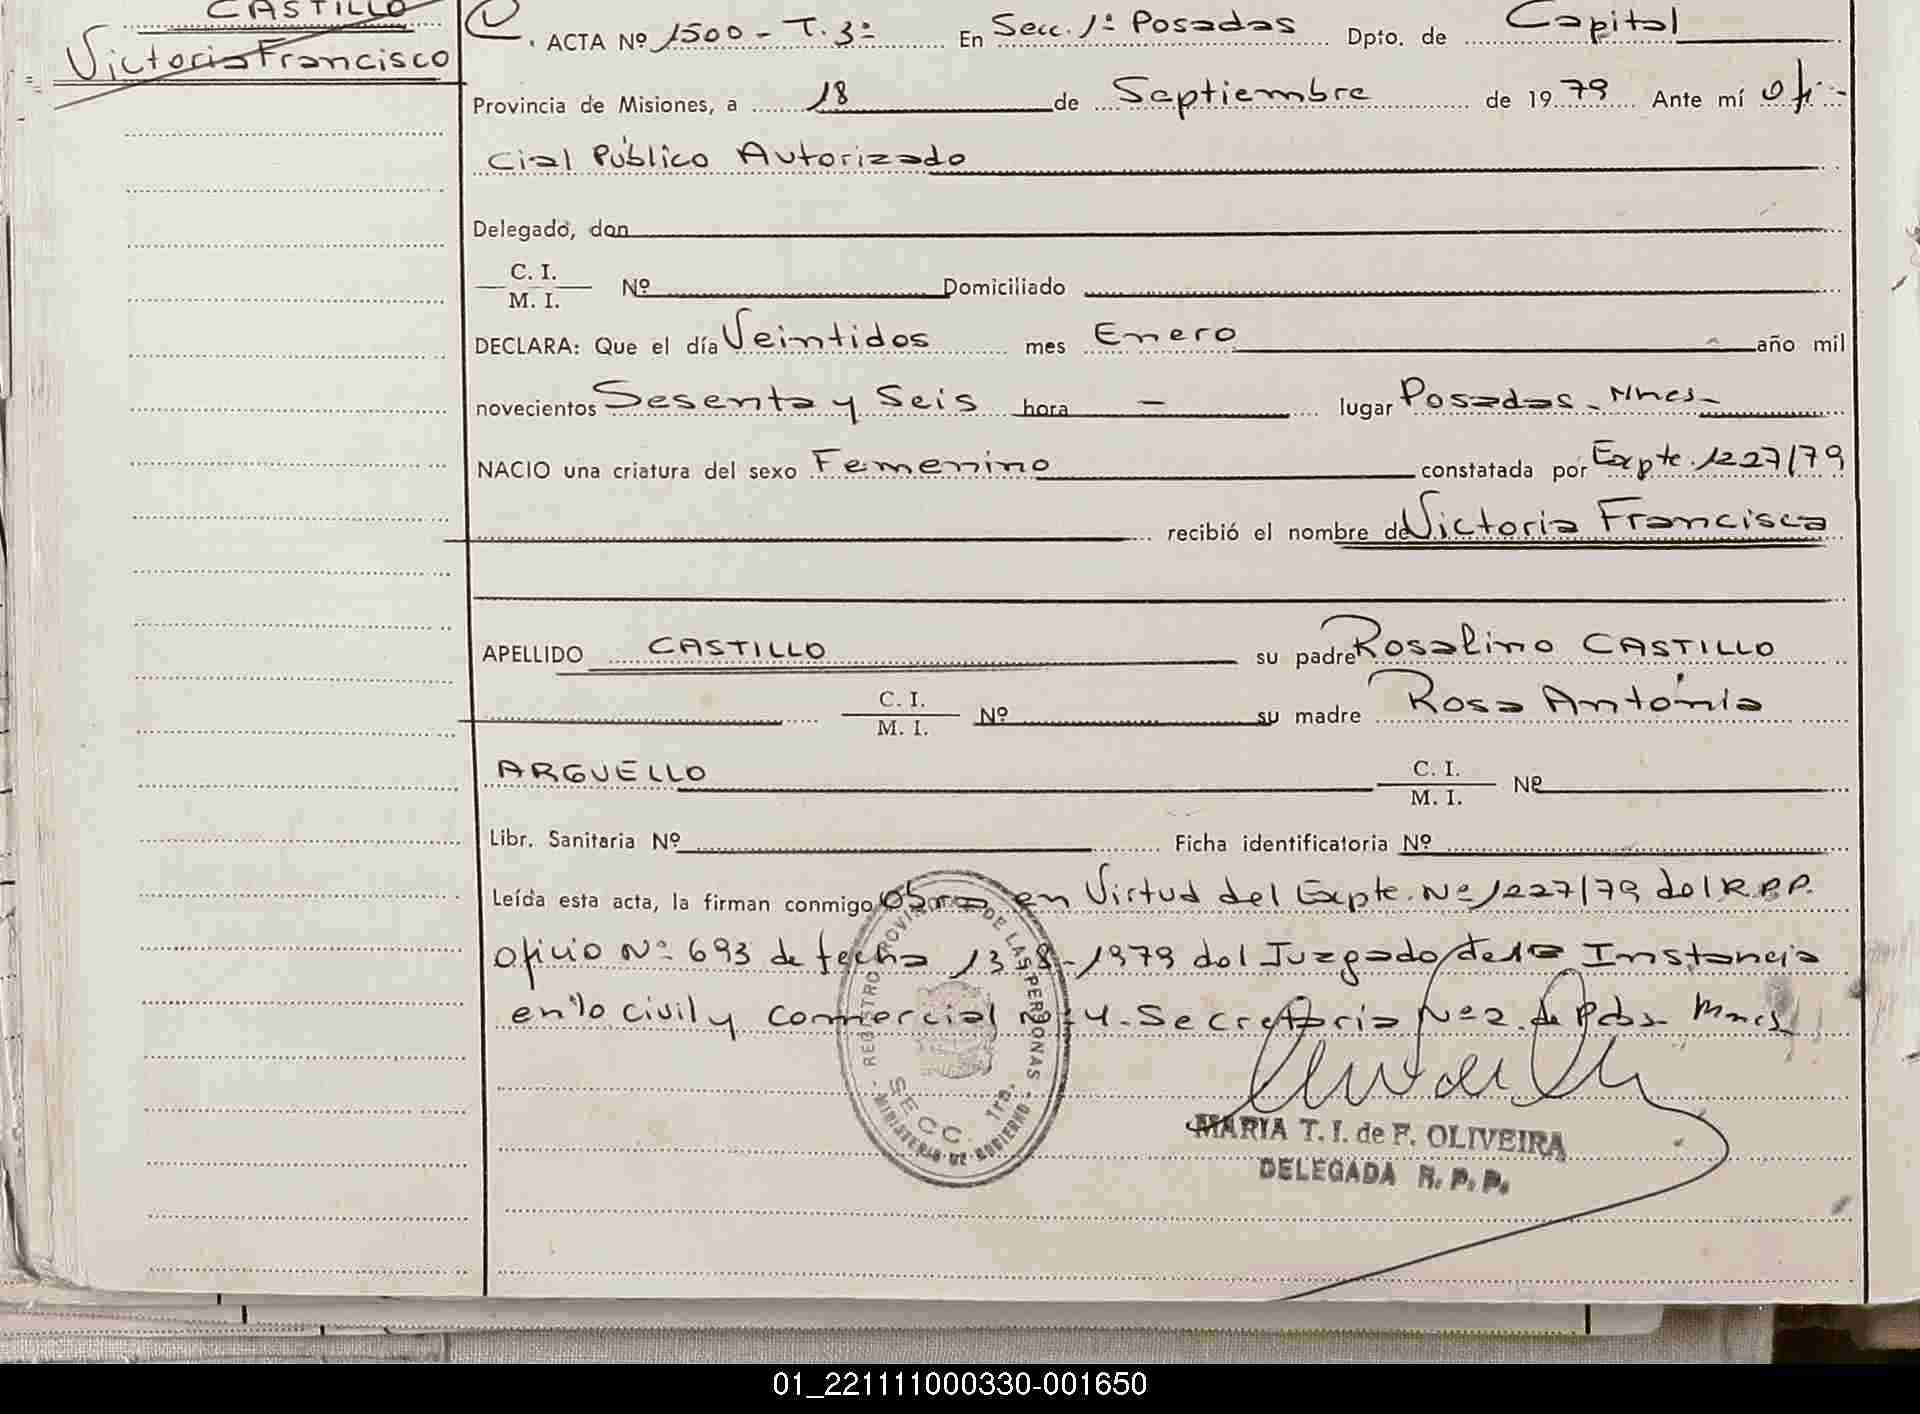 CASTILLO
Victoria Francisco
ACTA Nº 1500 - T. 3º En Secc. 1ª Posadas Dpto. de Capital
Provincia de Misiones, a 18 de Septiembre de 1979 Ante mí Ofi-
cial Público Autorizado
Delegado, don
C. I.
M. I. Nº Domiciliado
DECLARA: Que el día Veintidos mes Enero año mil
novecientos Sesenta y Seis hora - lugar Posadas - Mnes -
NACIO una criatura del sexo Femenino constatada por Expte. 1227/79
recibió el nombre de Victoria Francisca
APELLIDO CASTILLO su padre Rosalino CASTILLO
C. I.
M. I. Nº su madre Rosa Antonia
ARGUELLO C. I.
M. I. Nº
Libr. Sanitaria Nº Ficha identificatoria Nº
Leída esta acta, la firman conmigo Obra en Virtud del Expte. Nº 1227/79 del R.P.P.
Oficio Nº 693 de fecha 13-8-1979 del Juzgado de 1ª Instancia
en lo civil y comercial Nº 4 - Secretaria Nº 2 de Pdas - Mnes
REGISTRO PROVINCIAL DE LAS PERSONAS
SECC. 1ra.
MINISTERIO DE GOBIERNO
MARIA T. I. de F. OLIVEIRA
DELEGADA R. P. P.
01_221111000330-001650